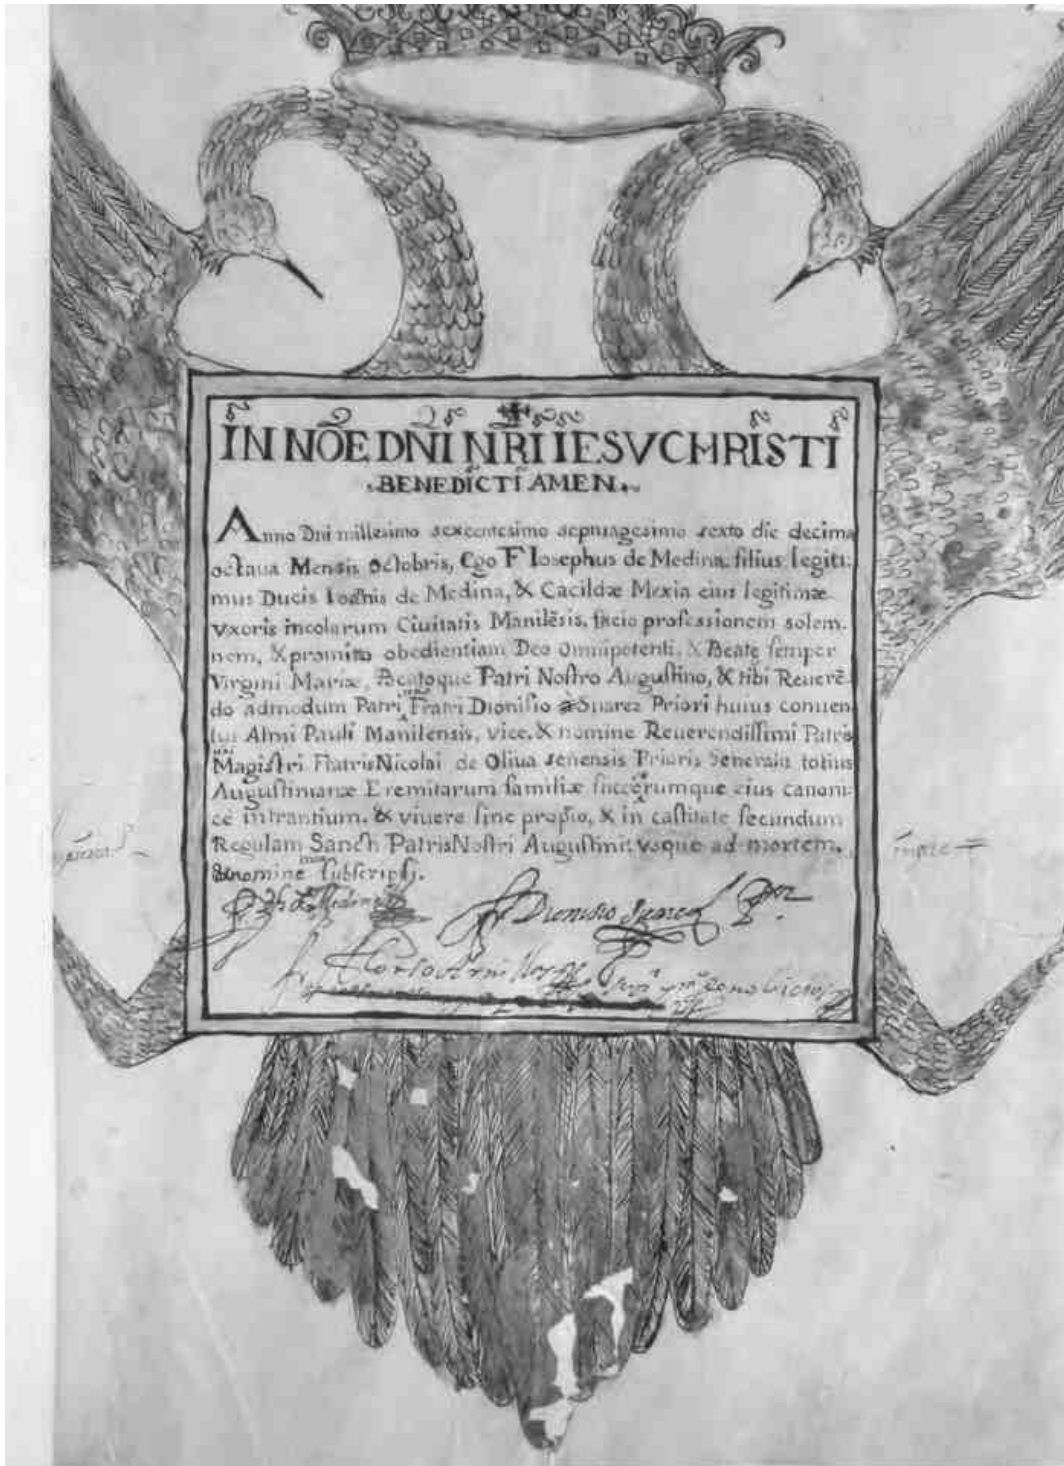 IN NOE DNI NRI IESV CHRISTI
BENEDICTI AMEN.
Anno Dni millesimo sexcentesimo septuagesimo sexto die decima
octaua Mensis Octobris, Ego F Iosephus de Medina filius legiti-
mus Ducis Ioãnis de Medina, & Cacildæ Mexia eius legitimæ
vxoris incolarum Ciuitatis Manilẽsis, facio professionem solem-
nem, & promitto obedientiam Deo omnipotenti, & Beatę semper
Virgini Mariæ, Beatoque Patri Nostro Augustino, & tibi Reuerẽ-
do admodum Patri Fratri Dionisio à Suarez Priori huius conuen
tus Almi Pauli Manilensis, vice, & nomine Reuerendissimi Patris
Magistri Fratris Nicolai de Oliua senensis Prioris Generalis totius
Augustinianæ Eremitarum familiæ succerumque eius canoni-
ce intrantium. & viuere sine proprio, & in castitate secundum
Regulam Sancti Patris Nostri Augustini, vsque ad mortem.
nomine meo subscripsi.
Medina
Dionisio Suarez Por